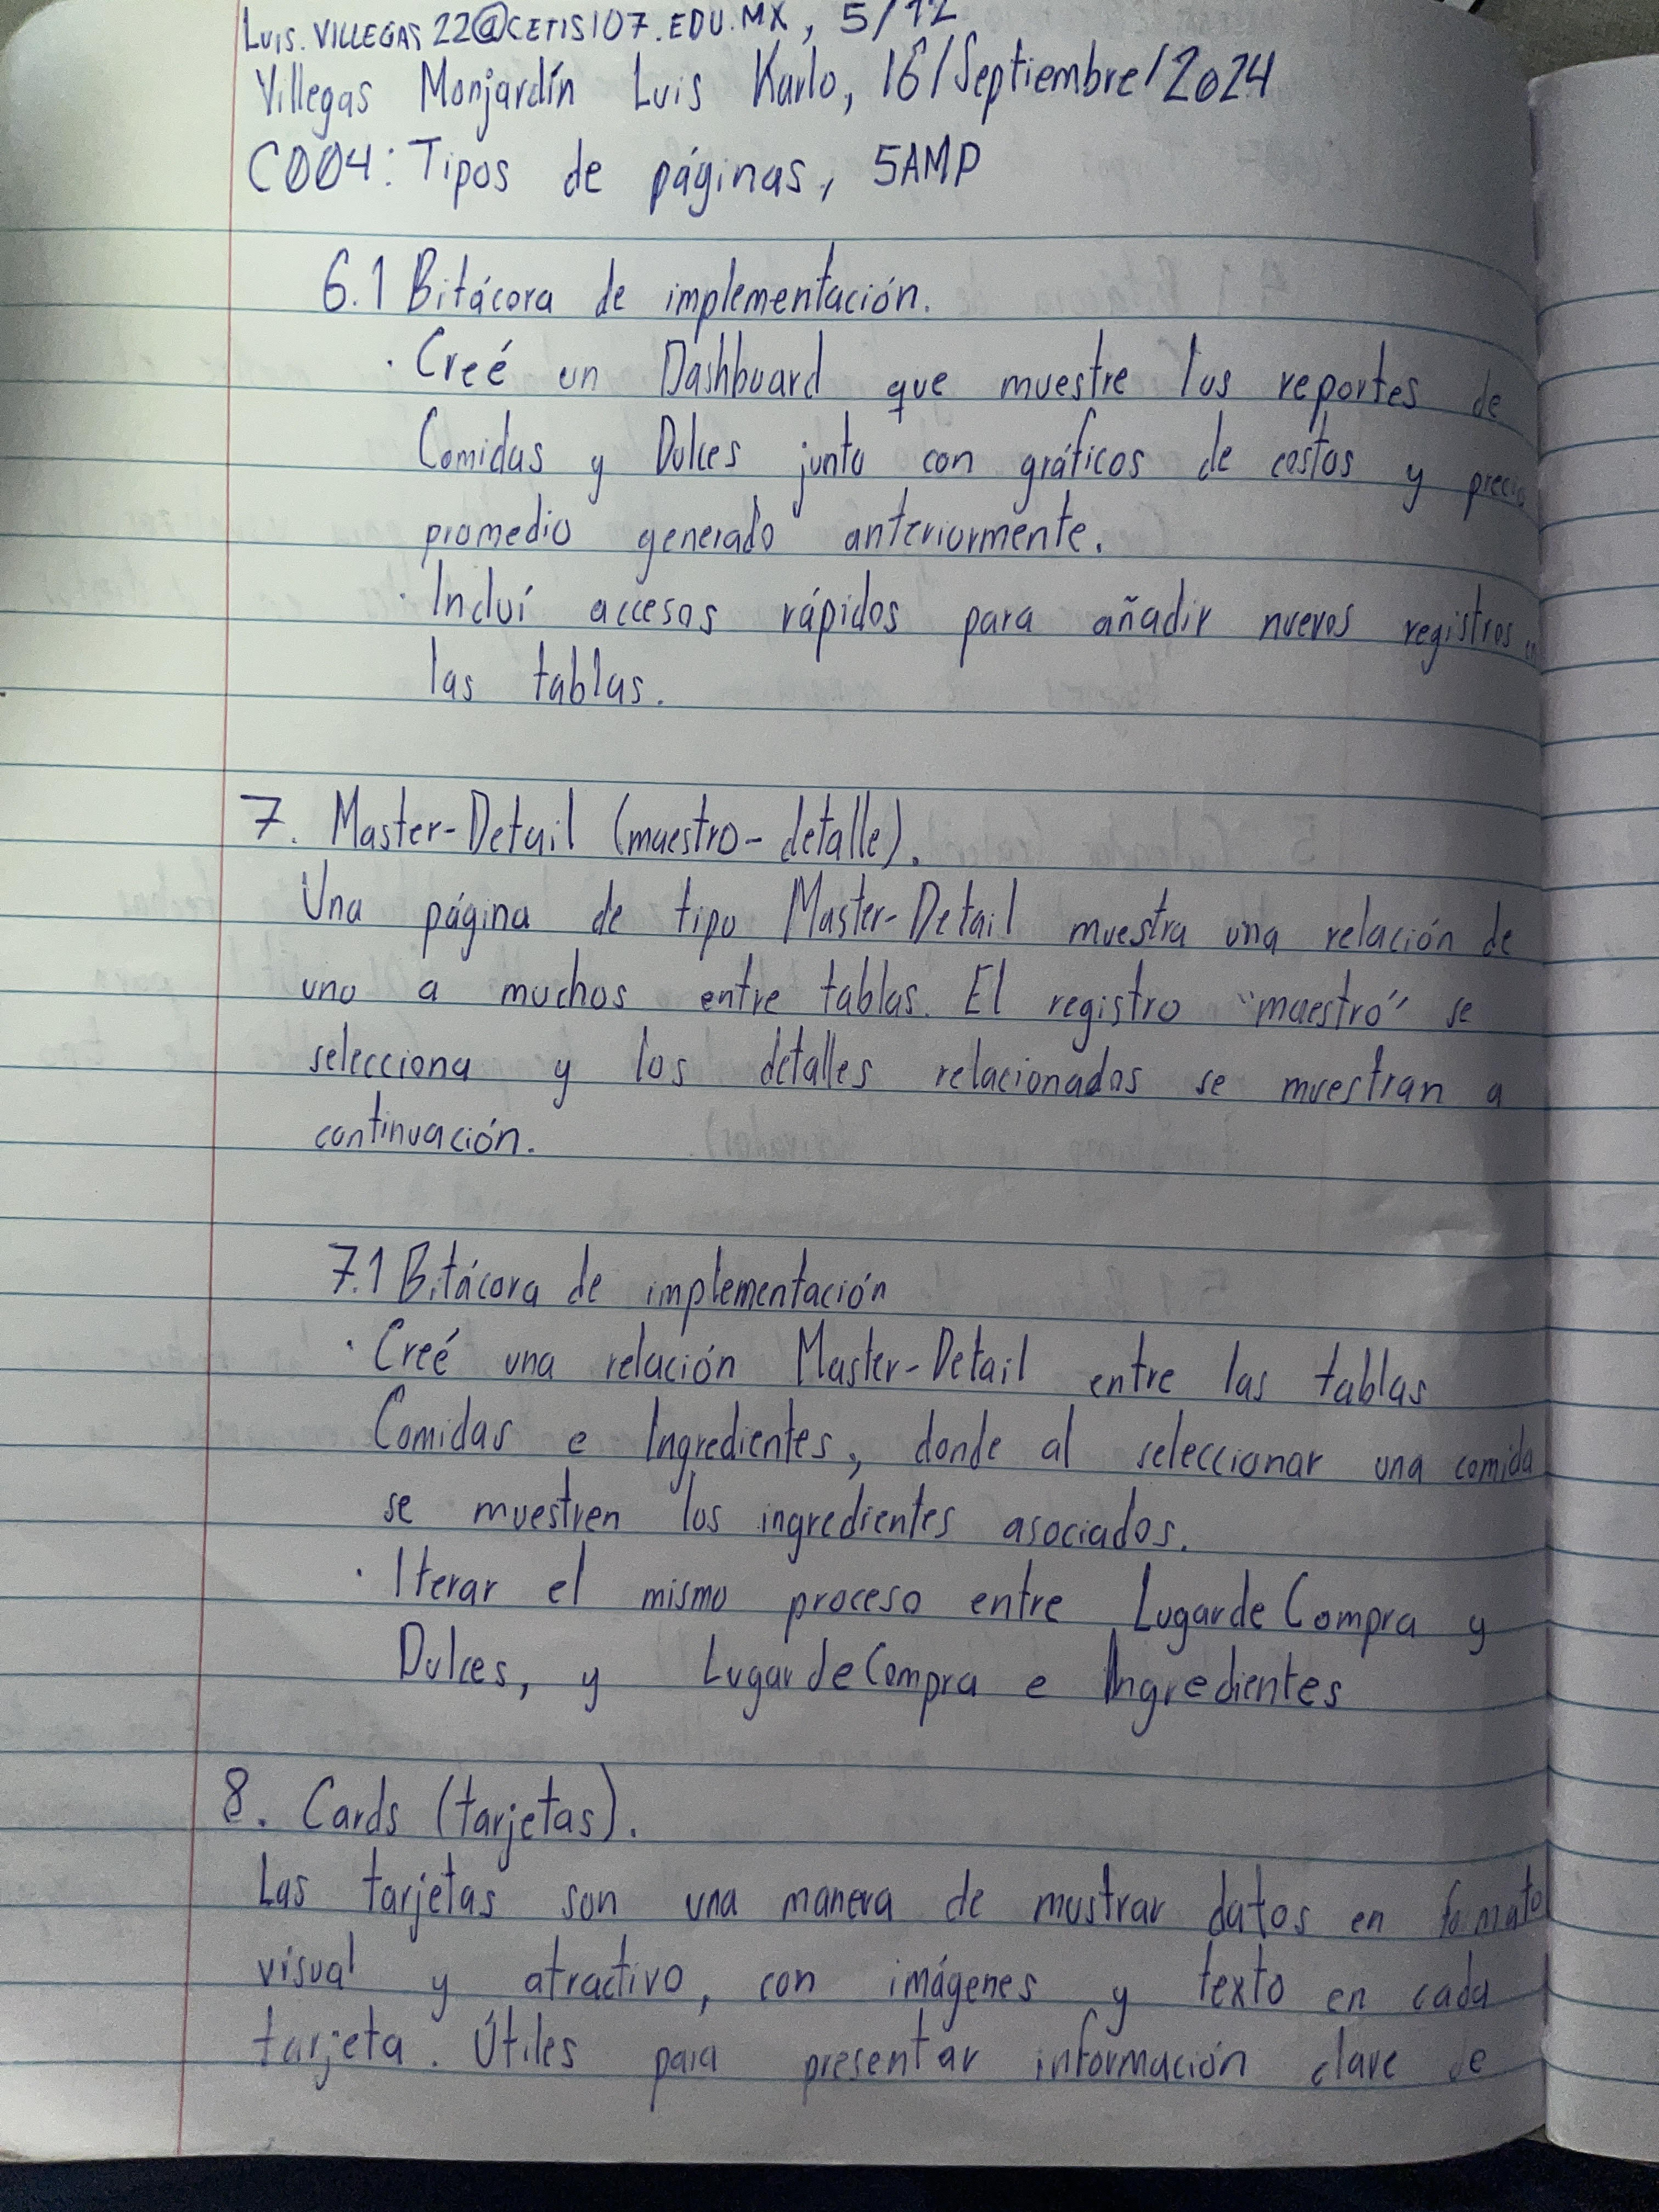 LUIS.VILLEGAS22@CETIS107.EDU.MX, 5/12
Villegas Monjardín Luis Karlo, 16/Septiembre/2024
C004: Tipos de páginas, 5AMP
6.1 Bitácora de implementación.
· Creé un Dashboard que muestre los reportes de
Comidas y Dulces junto con gráficos de costos y precio
promedio generado anteriormente.
· Incluí accesos rápidos para añadir nuevos registros en
las tablas.
7. Master-Detail (maestro-detalle).
Una página de tipo Master-Detail muestra una relación de
uno a muchos entre tablas. El registro "maestro" se
selecciona y los detalles relacionados se muestran a
continuación.
7.1 Bitácora de implementación
· Creé una relación Master-Detail entre las tablas
Comidas e Ingredientes, donde al seleccionar una comida
se muestren los ingredientes asociados.
· Iterar el mismo proceso entre LugardeCompra y
Dulces, y LugardeCompra e Ingredientes
8. Cards (tarjetas).
Las tarjetas son una manera de mustrar datos en formato
visual y atractivo, con imágenes y texto en cada
tarjeta. Útiles para presentar información clave de